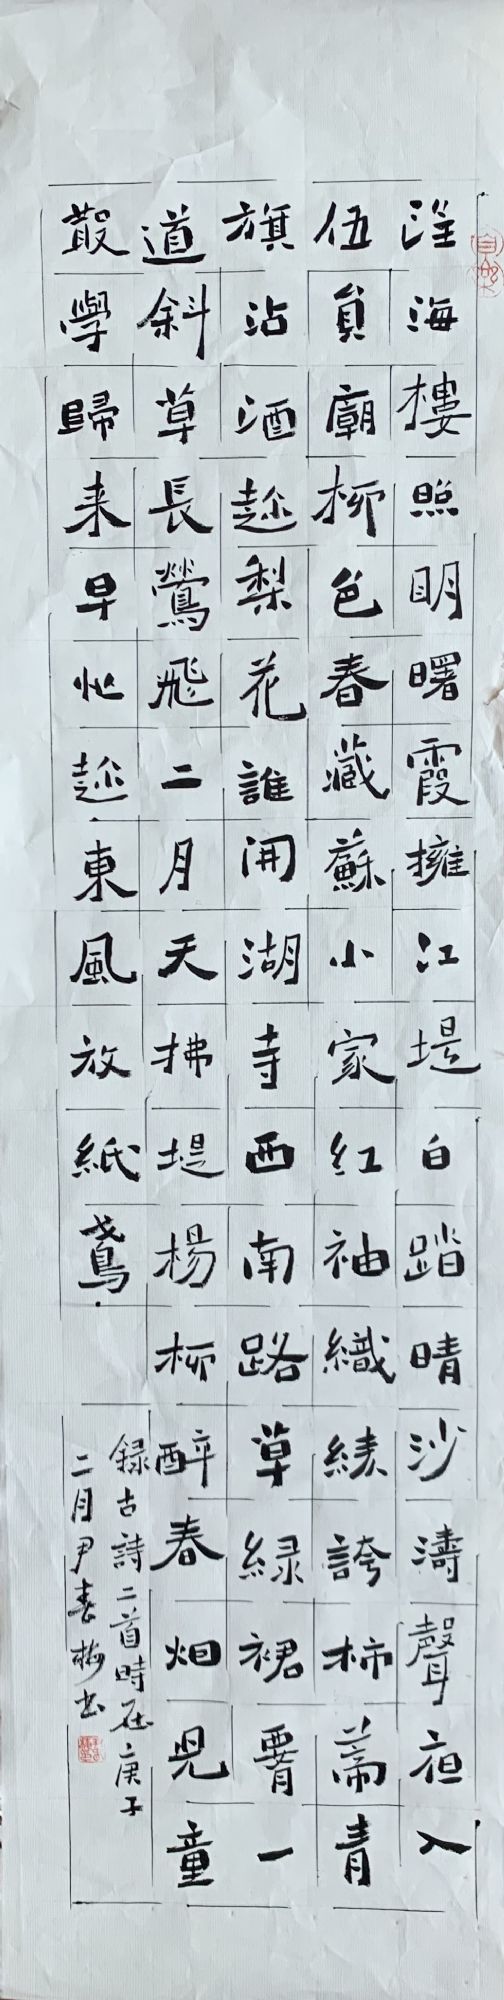 海樓照明曙霞擁江堤白踏晴沙濤聲夜入
伍員廟柳色春藏蘇小家紅袖織綾誇柿蒂青
旗沽酒趂梨花誰開湖寺西南路草緑裙腰一
道斜草長鶯飛二月天拂堤楊柳醉春烟兒童
散學歸来早忙趂東風放紙鳶
録古詩二首時在庚子
二月尹春梅书